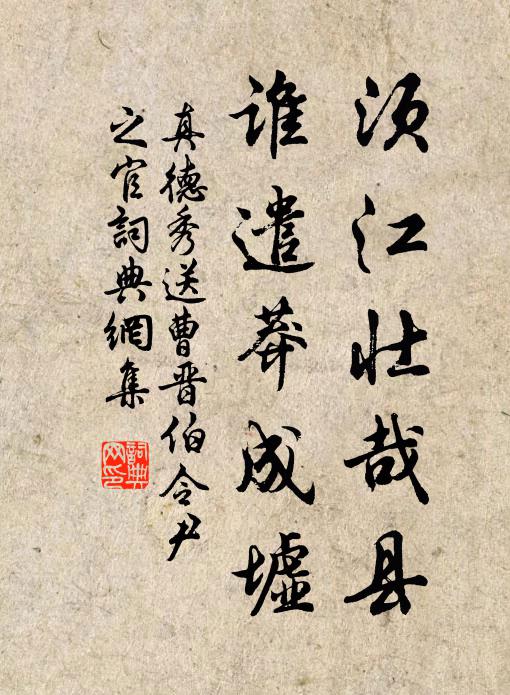 须江壮哉县
谁遣莽成墟
真德秀送曹晋伯令尹
之官詞典網集
詞典网印